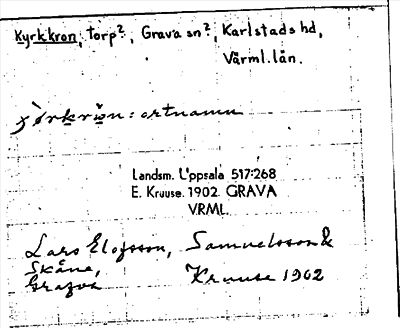 Kyrkkron, torp?, Grava sn?, Karlstads hd,
Värml. län.
ortnamn
Landsm. Uppsala 517:268
E. Kruuse. 1902. GRAVA
VRML.
Lars Elofsson, Samuelsson &
Skåne, Kruuse 1902